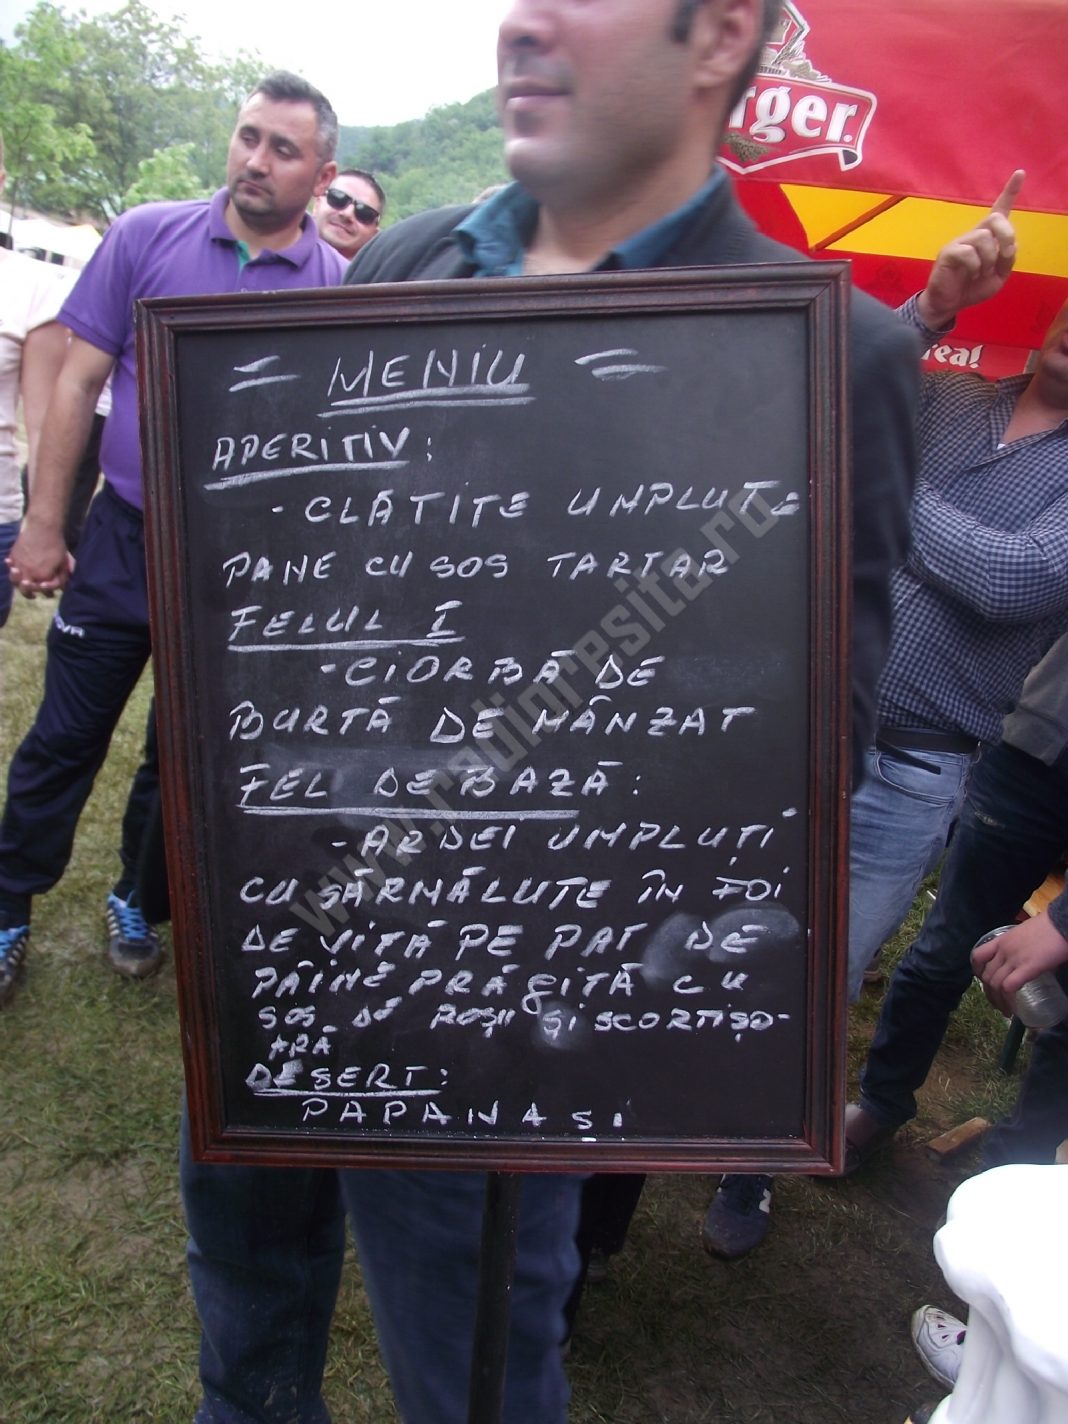 = MENIU =
APERITIV:
- CLĂTITE UMPLUTE
PANE CU SOS TARTAR
FELUL I
- CIORBĂ DE
BURTĂ DE MÂNZAT
FEL DE BAZĂ:
- ARDEI UMPLUȚI
CU SĂRMĂLUȚE ÎN FOI
DE VIȚĂ PE PAT DE
PÂINE PRĂGITĂ CU
SOS DE ROȘII ȘI SCORȚIȘO-
ARĂ
DESERT:
PAPANAȘI
www.radioresita.ro
rger
rea!